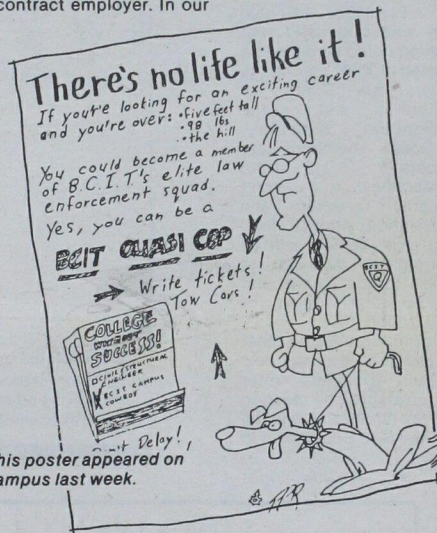 contract employer. In our
There's no life like it!
If you're looking for an exciting career
and you're over: •five feet tall
•98 lbs
•the hill
You could become a member
of B.C.I.T.'s elite law
enforcement squad.
Yes, you can be a
BCIT QUASI COP
Write tickets!
Tow Cars!
COLLEGE
WITHOUT
SUCCESS!
CIVIL/STRUCTURAL
ENGINEER
BCIT CAMPUS
COWBOY
BCIT
Delay!,
his poster appeared on
ampus last week.